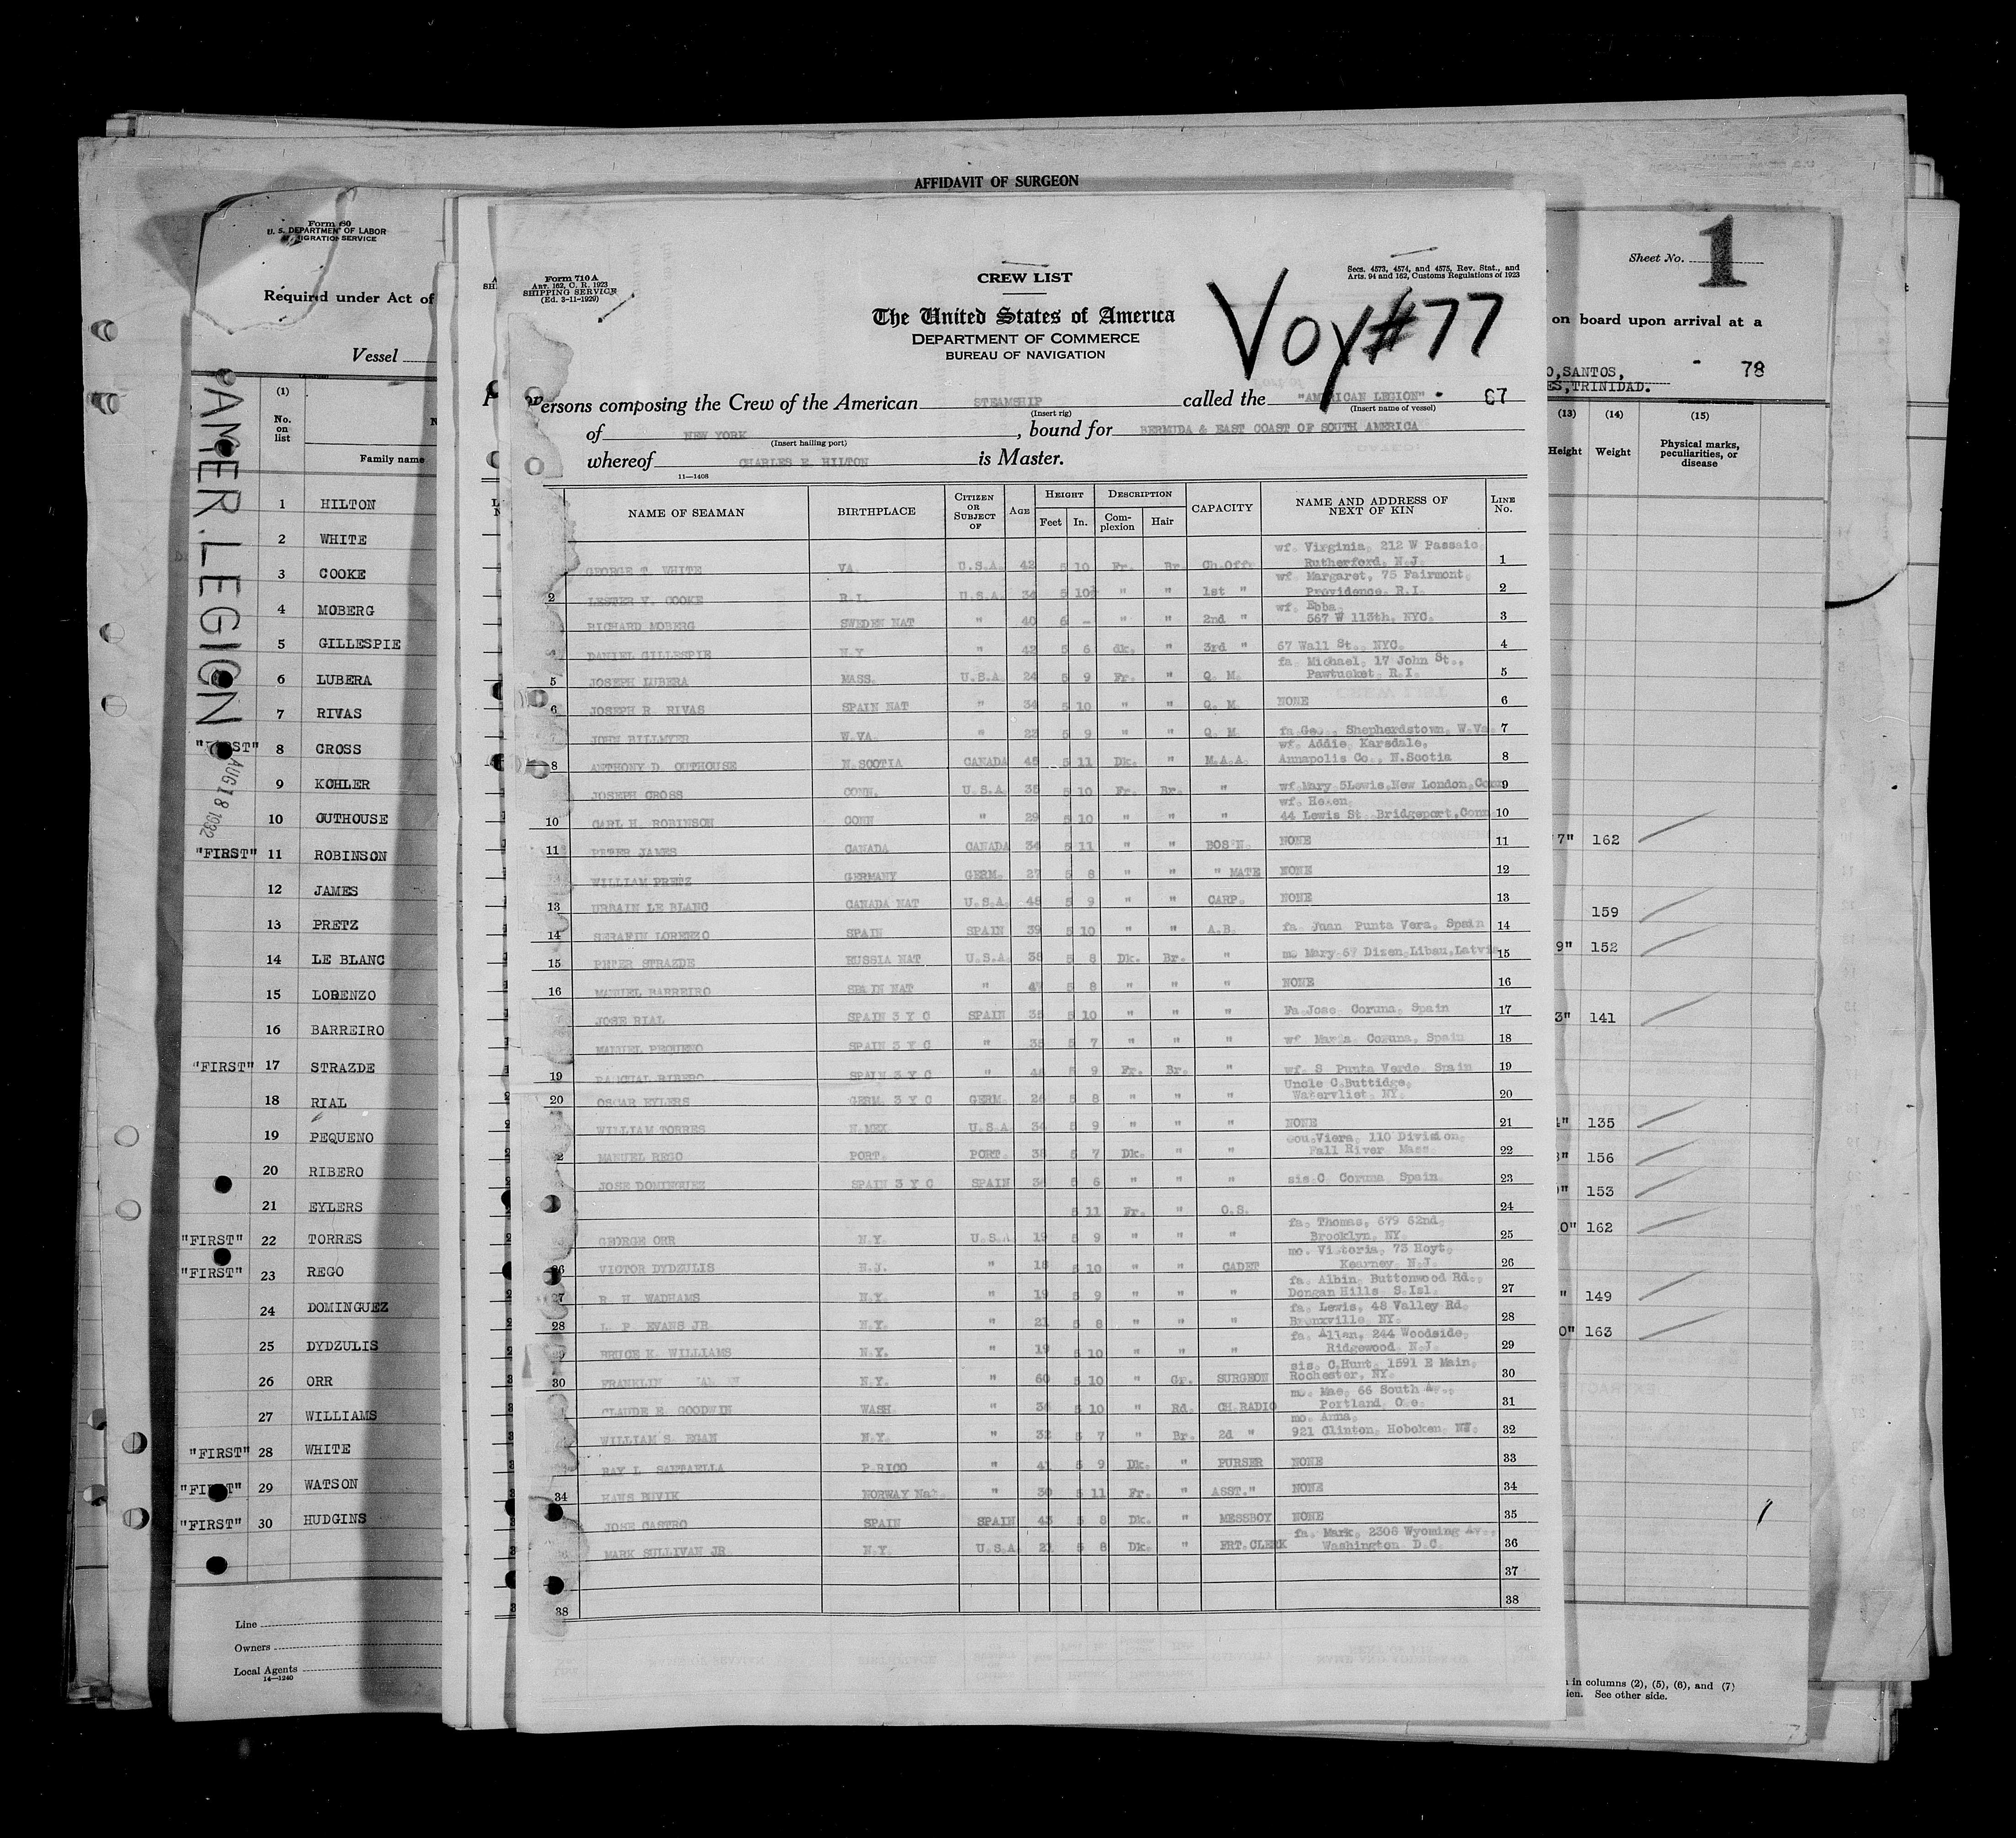 AFFIDAVIT OF SURGEON
Form 680
U. S. DEPARTMENT OF LABOR
IMMIGRATION SERVICE
Required under Act of
Vessel
AMER. LEGION
AUG 18 1932
(1)
No. on list
Family name
1 HILTON
2 WHITE
3 COOKE
4 MOBERG
5 GILLESPIE
6 LUBERA
7 RIVAS
"FIRST" 8 CROSS
9 KOHLER
10 OUTHOUSE
"FIRST" 11 ROBINSON
12 JAMES
13 PRETZ
14 LE BLANC
15 LORENZO
16 BARREIRO
"FIRST" 17 STRAZDE
18 RIAL
19 PEQUENO
20 RIBERO
21 EYLERS
"FIRST" 22 TORRES
"FIRST" 23 REGO
24 DOMINGUEZ
25 DYDZULIS
26 ORR
27 WILLIAMS
"FIRST" 28 WHITE
"FIRST" 29 WATSON
"FIRST" 30 HUDGINS
Line
Owners
Local Agents
14—1240
Form 710 A
Art. 162, C. R. 1923
SHIPPING SERVICE
(Ed. 3-11-1929)
CREW LIST
Secs. 4573, 4574, and 4575, Rev. Stat., and
Arts. 94 and 162, Customs Regulations of 1923
The United States of America
DEPARTMENT OF COMMERCE
BUREAU OF NAVIGATION
Voy #77
Persons composing the Crew of the American STEAMSHIP called the "AMERICAN LEGION" - 67
(Insert rig) (Insert name of vessel)
of NEW YORK, bound for BERMUDA & EAST COAST OF SOUTH AMERICA
(Insert hailing port)
whereof CHARLES E. HILTON is Master.
11—1408
NAME OF SEAMAN BIRTHPLACE CITIZEN OR SUBJECT OF AGE HEIGHT Feet In. DESCRIPTION Complexion Hair CAPACITY NAME AND ADDRESS OF NEXT OF KIN LINE No.
wf. Virginia, 212 W Passaic,
GEORGE T. WHITE VA. U.S.A. 42 5 10 Fr. Br. Ch.Off. Rutherford, N.J. 1
wf. Margaret, 75 Fairmont,
2 LESTER V. COOKE R.I. U.S.A. 34 5 10½ " " 1st " Providence, R.I. 2
wf. Ebba,
RICHARD MOBERG SWEDEN NAT " 40 6 - " " 2nd " 567 W 113th, NYC. 3
DANIEL GILLESPIE N.Y " 42 5 6 dk. " 3rd " 67 Wall St., NYC. 4
fa. Michael, 17 John St.,
5 JOSEPH LUBERA MASS. U.S.A. 24 5 9 Fr. " Q. M. Pawtucket, R.I. 5
6 JOSEPH R. RIVAS SPAIN NAT " 34 5 10 " " Q. M. NONE 6
7 JOHN BILLMYER W.VA. " 22 5 9 " " Q. M. fa.Geo., Shepherdstown, W.Va. 7
wf. Addie, Karsdale,
8 ANTHONY D. OUTHOUSE N.SCOTIA CANADA 45 5 11 Dk. " M.A.A. Annapolis Co., N.Scotia 8
JOSEPH CROSS CONN. U.S.A. 35 5 10 Fr. Br. " wf.Mary 5Lewis,New London,Conn 9
wf. Helen,
10 CARL H. ROBINSON CONN " 29 5 10 " " " 44 Lewis St. Bridgeport,Conn 10
11 PETER JAMES CANADA CANADA 34 5 11 " " BOS'N. NONE 11
WILLIAM PRETZ GERMANY GERM. 27 5 8 " " " MATE NONE 12
13 URBAIN LE BLANC CANADA NAT U.S.A. 48 5 9 " " CARP. NONE 13
14 SERAFIN LORENZO SPAIN SPAIN 39 5 10 " " A.B. fa. Juan Punta Vera, Spain 14
15 PETER STRAZDE RUSSIA NAT U.S.A. 38 5 8 Dk. Br. " mo Mary 67 Dizen,Libau,Latvia 15
16 MANUEL BARREIRO SPAIN NAT " 47 5 8 " " " NONE 16
JOSE RIAL SPAIN 3 Y C SPAIN 35 5 10 " " " Fa.Jose, Coruna, Spain 17
MANUEL PEQUENO SPAIN 3 Y C " 35 5 7 " " " wf. Maria Coruna, Spain 18
19 PASCUAL RIBERO SPAIN 3 Y C " 5 9 Fr. Br. " wf. S Punta Verde, Spain 19
Uncle C.Buttidge,
20 OSCAR EYLERS GERM. 3 Y C GERM. 26 5 8 " " " Watervliet, NY. 20
WILLIAM TORRES N.MEX. U.S.A. 34 5 9 " " " NONE 21
cou.Viera, 110 Division,
MANUEL REGO PORT. PORT. 38 5 7 Dk. " " Fall River Mass. 22
JOSE DOMINGUEZ SPAIN 3 Y C SPAIN 36 5 6 " " " sis.C Coruna, Spain. 23
5 11 Fr. " O.S. 24
fa. Thomas, 679 62nd,
GEORGE ORR N.Y. U.S.A 19 5 9 " " " Brooklyn, NY 25
mo. Victoria, 73 Hoyt,
26 VICTOR DYDZULIS N.J. " 18 5 10 " " CADET Kearney, N.J. 26
fa. Albin, Buttonwood Rd.,
27 R. H. WADHAMS N.Y. " 19 5 9 " " " Dongan Hills S.Isl. 27
fa. Lewis, 48 Valley Rd,
28 L. P. EVANS JR N.Y. " 21 5 8 " " " Bronxville, NY. 28
fa. Allan, 244 Woodside,
BRUCE K. WILLIAMS N.Y. " 19 5 10 " " " Ridgewood, N.J. 29
sis. C.Hunt, 1591 E Main,
30 FRANKLIN N.Y. " 60 5 10 " Gr. SURGEON Rochester, NY. 30
mo. Mae, 66 South Av.,
CLAUDE E. GOODWIN WASH. " 36 5 10 " Rd. CH.RADIO Portland, Ore. 31
mo. Anna,
WILLIAM S. EGAN N.Y. " 32 5 7 " Br. 2d " 921 Clinton, Hoboken, NJ. 32
RAY L. SAFTAELLA P.RICO " 41 5 9 Dk. " PURSER NONE 33
34 HANS BUVIK NORWAY Nat. " 30 5 11 Fr. " ASST." NONE 34
JOSE CASTRO SPAIN SPAIN 43 5 8 Dk. " MESSBOY NONE 35
fa. Mark, 2306 Wyoming Av.,
MARK SULLIVAN JR. N.Y. U.S.A. 21 5 8 Dk. " FRT.CLERK Washington D.C. 36
37
38 38
Sheet No. 1
on board upon arrival at a
O,SANTOS, - 78
ES,TRINIDAD.
(13) (14) (15)
Height Weight Physical marks, peculiarities, or disease
7" 162
159
9" 152
3" 141
" 135
" 156
" 153
0" 162
" 149
0" 163
in columns (2), (5), (6), and (7)
ien. See other side.